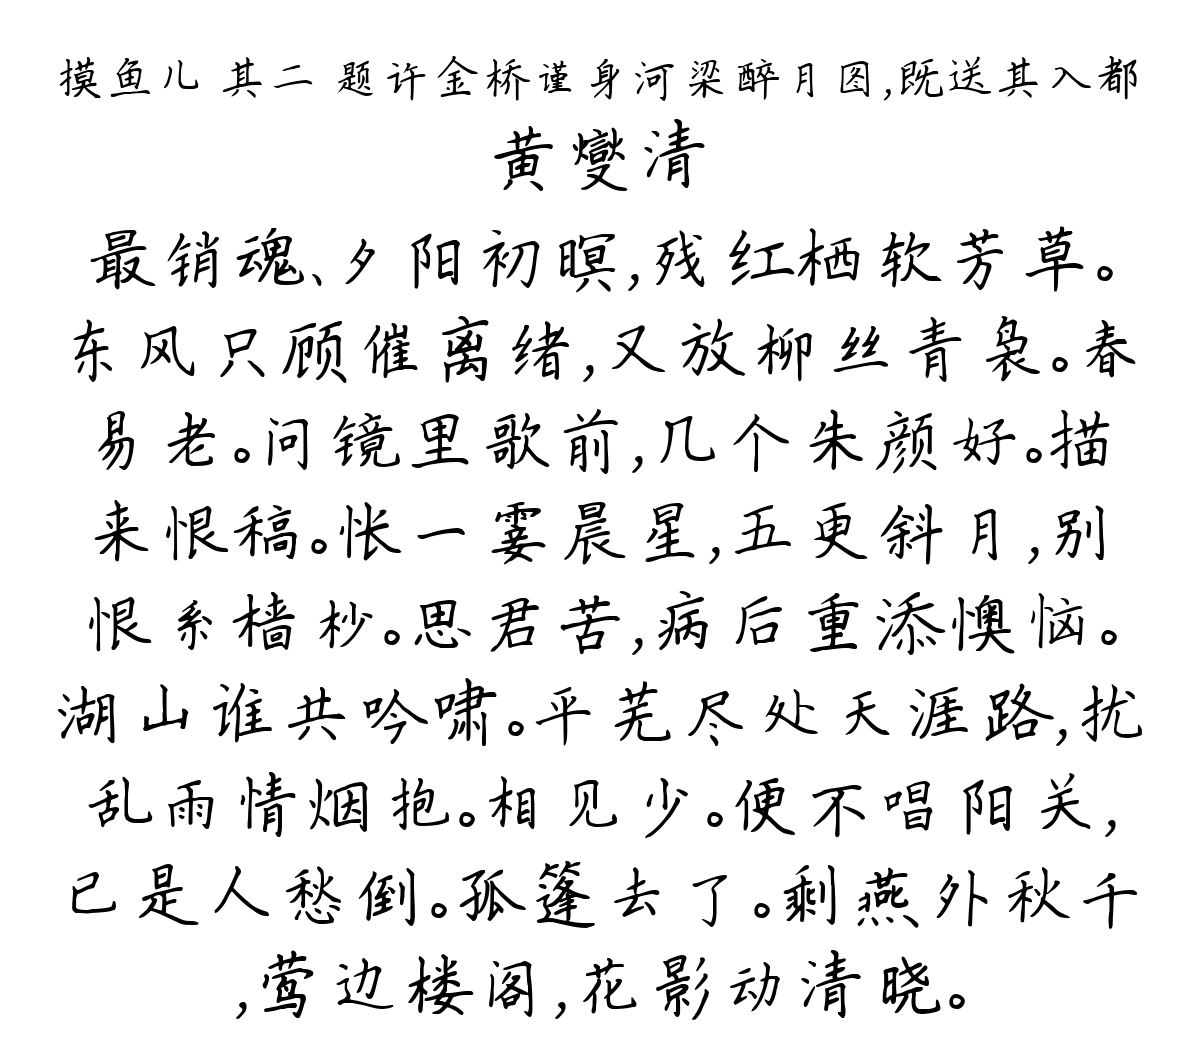 摸鱼儿 其二 题许金桥谨身河梁醉月图,既送其入都
黄燮清
最销魂、夕阳初暝,残红栖软芳草。
东风只顾催离绪,又放柳丝青袅。春
易老。问镜里歌前,几个朱颜好。描
来恨稿。怅一霎晨星,五更斜月,别
恨系樯杪。思君苦,病后重添懊恼。
湖山谁共吟啸。平芜尽处天涯路,扰
乱雨情烟抱。相见少。便不唱阳关,
已是人愁倒。孤篷去了。剩燕外秋千
,莺边楼阁,花影动清晓。